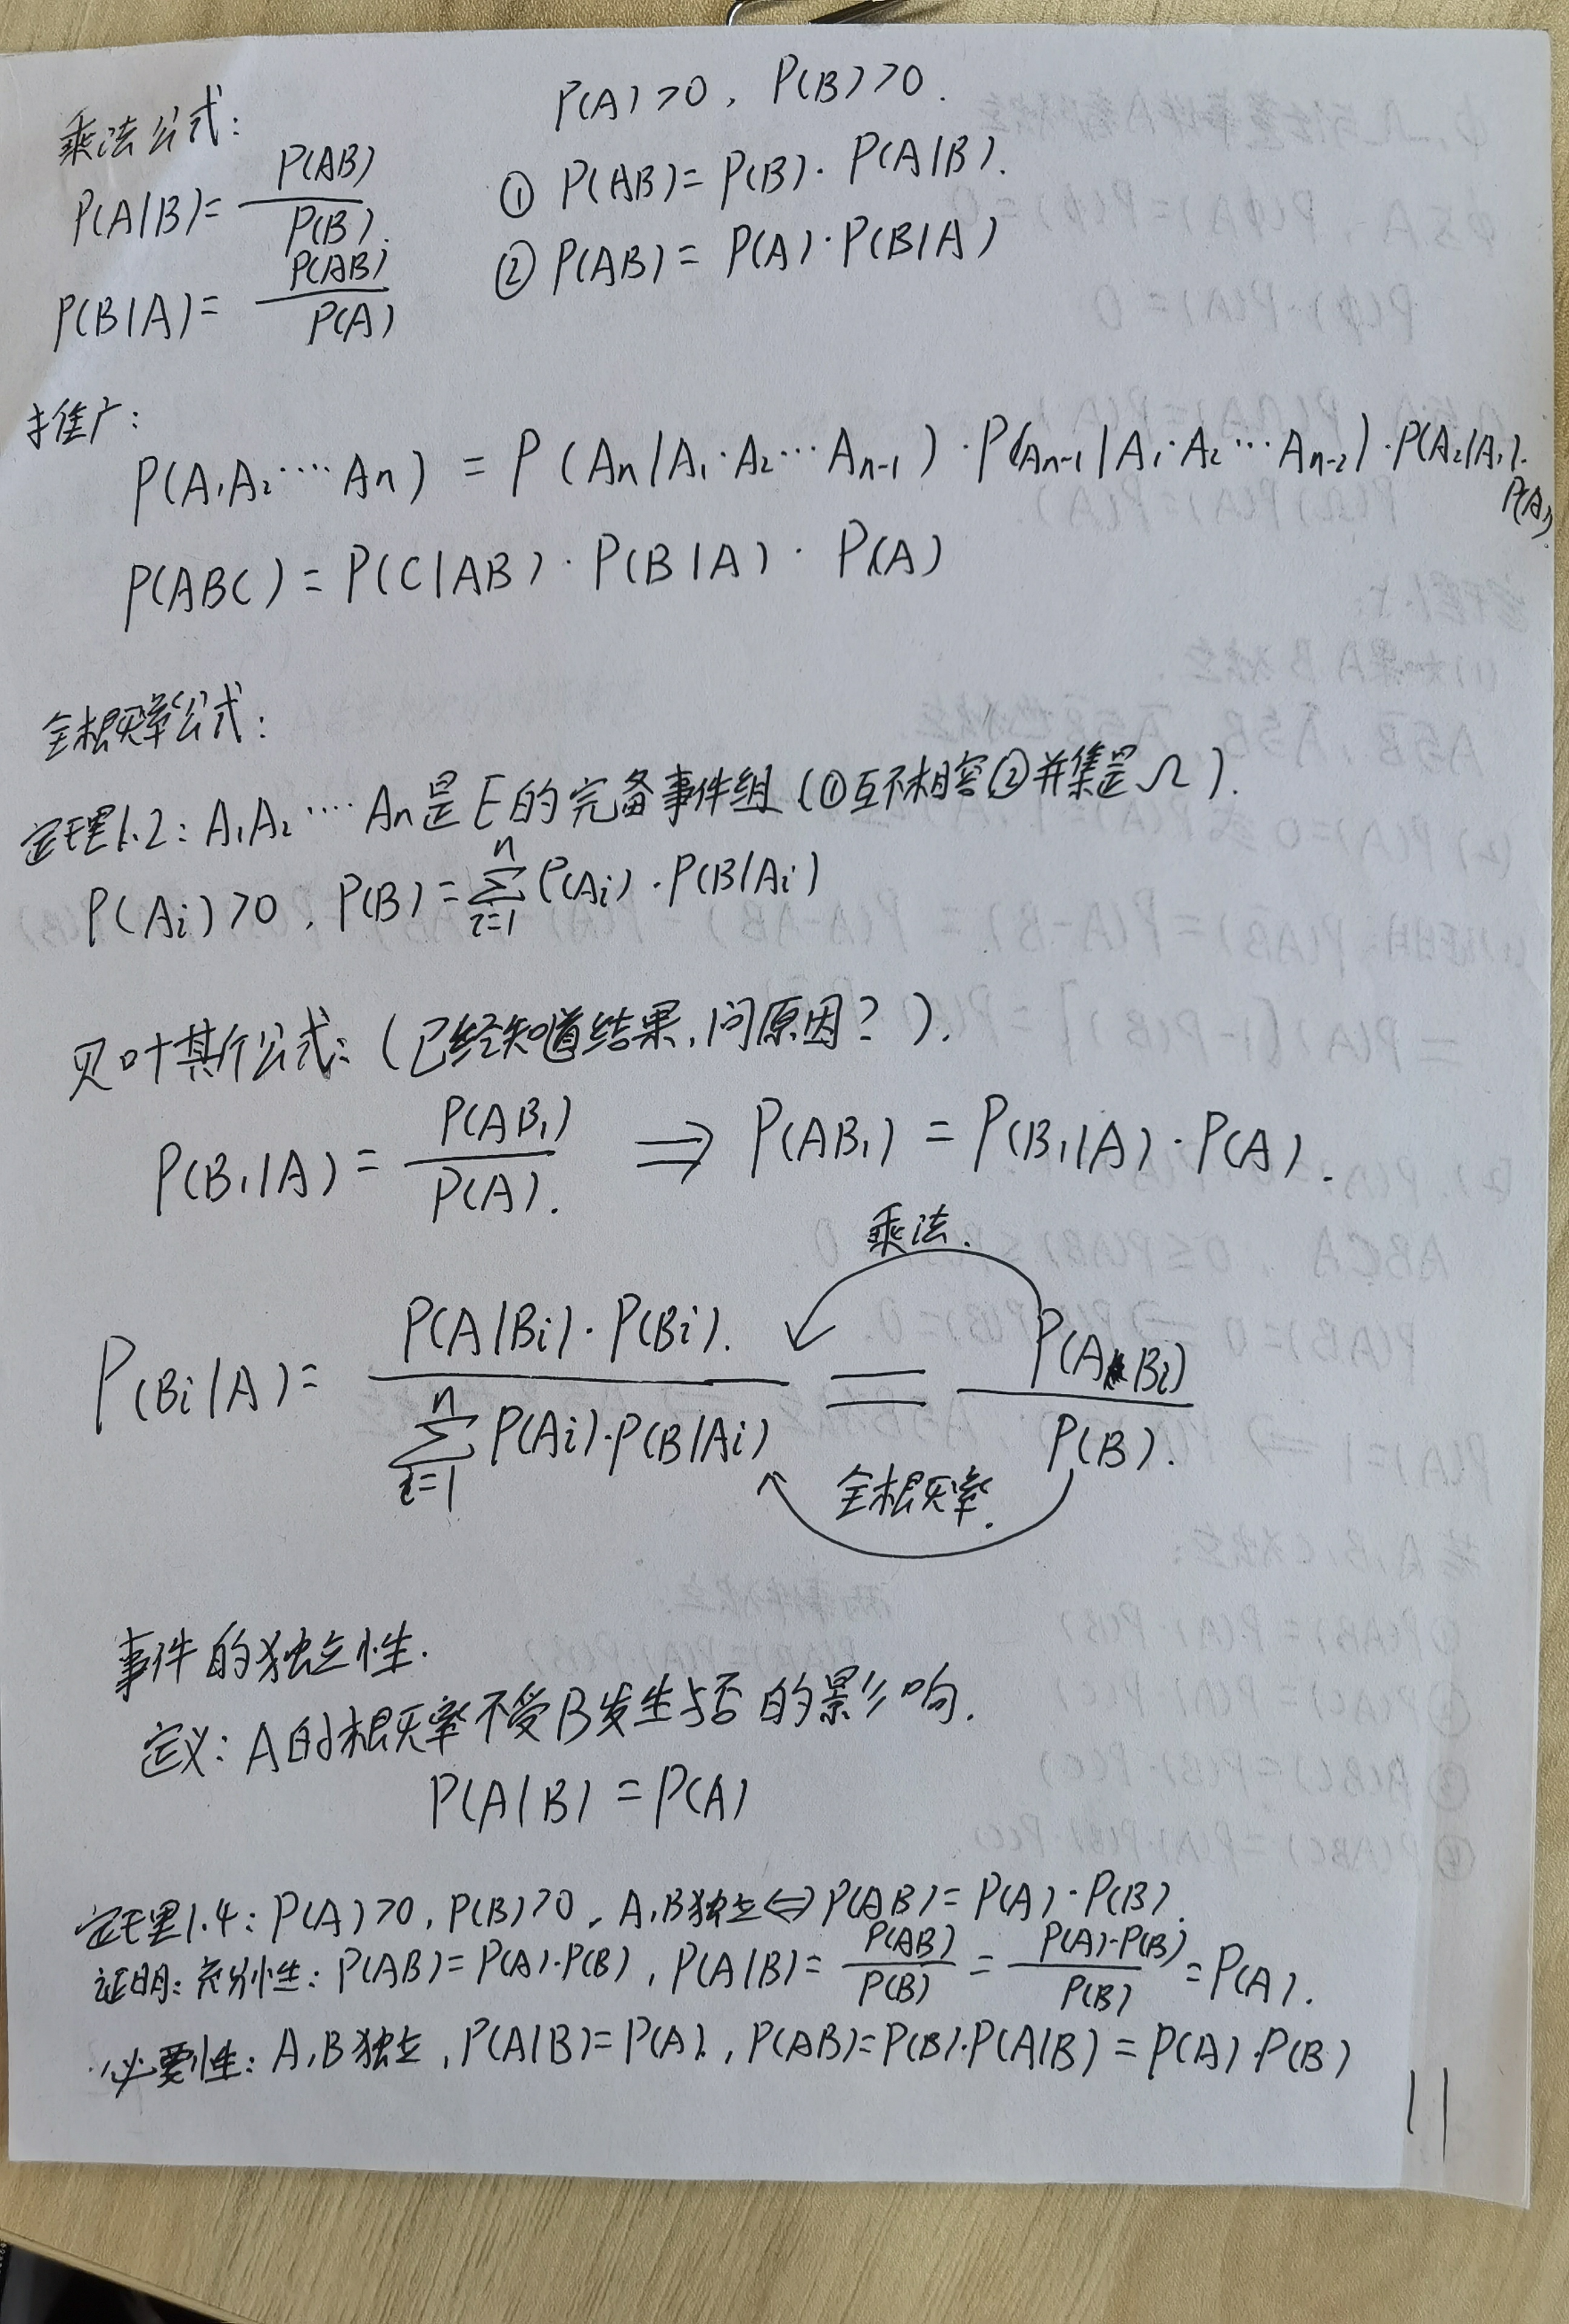 乘法公式: P(A)>0, P(B)>0.
P(A|B)= P(AB)/P(B). ① P(AB)=P(B)·P(A|B).
P(B|A)= P(AB)/P(A) ② P(AB)=P(A)·P(B|A)
推广:
P(A₁A₂····An) = P(An|A₁·A₂···An-1)·P(An-1|A₁·A₂···An-2)·P(A₂|A₁).P(A₁).
P(ABC)=P(C|AB)·P(B|A)·P(A)
全概率公式:
定理1.2: A₁A₂····An是E的完备事件组(①互不相容②并集是Ω).
P(Ai)>0, P(B)=∑ⁿᵢ₌₁P(Ai)·P(B|Ai)
贝叶斯公式:(已经知道结果,问原因?).
P(B₁|A)= P(AB₁)/P(A). ⇒ P(AB₁)=P(B₁|A)·P(A).
乘法.
P(Bi|A)= P(A|Bi)·P(Bi). / ∑ⁿᵢ₌₁P(Ai)·P(B|Ai) = P(ABi)/P(B).
全概率.
事件的独立性.
定义: A的概率不受B发生与否的影响.
P(A|B)=P(A)
定理1.4: P(A)>0, P(B)>0, A,B独立⇔P(AB)=P(A)·P(B).
证明: 充分性: P(AB)=P(A)·P(B), P(A|B)= P(AB)/P(B) = P(A)·P(B)/P(B) =P(A).
必要性: A,B独立, P(A|B)=P(A), P(AB)=P(B).P(A|B)=P(A)·P(B)
11